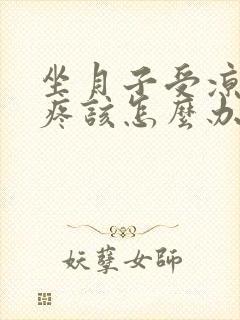 坐月子受涼
疼該怎麼办
妖孽女師